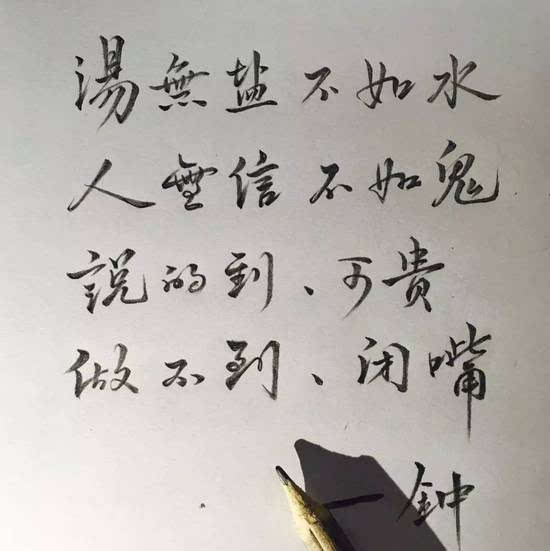 湯無盐不如水
人無信不如鬼
説的到、可貴
做不到、闭嘴
一鈡